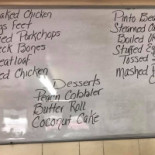 aked Chicken
gs Feet
ed Porkchops
eck Bones
eatloaf
ied Chicken
Pinto Bea
Steamed Ca
Boiled O
Stuffed
Tossed
Mashed
Desserts
Peach Cobbler
Butter Roll
Coconut Cake